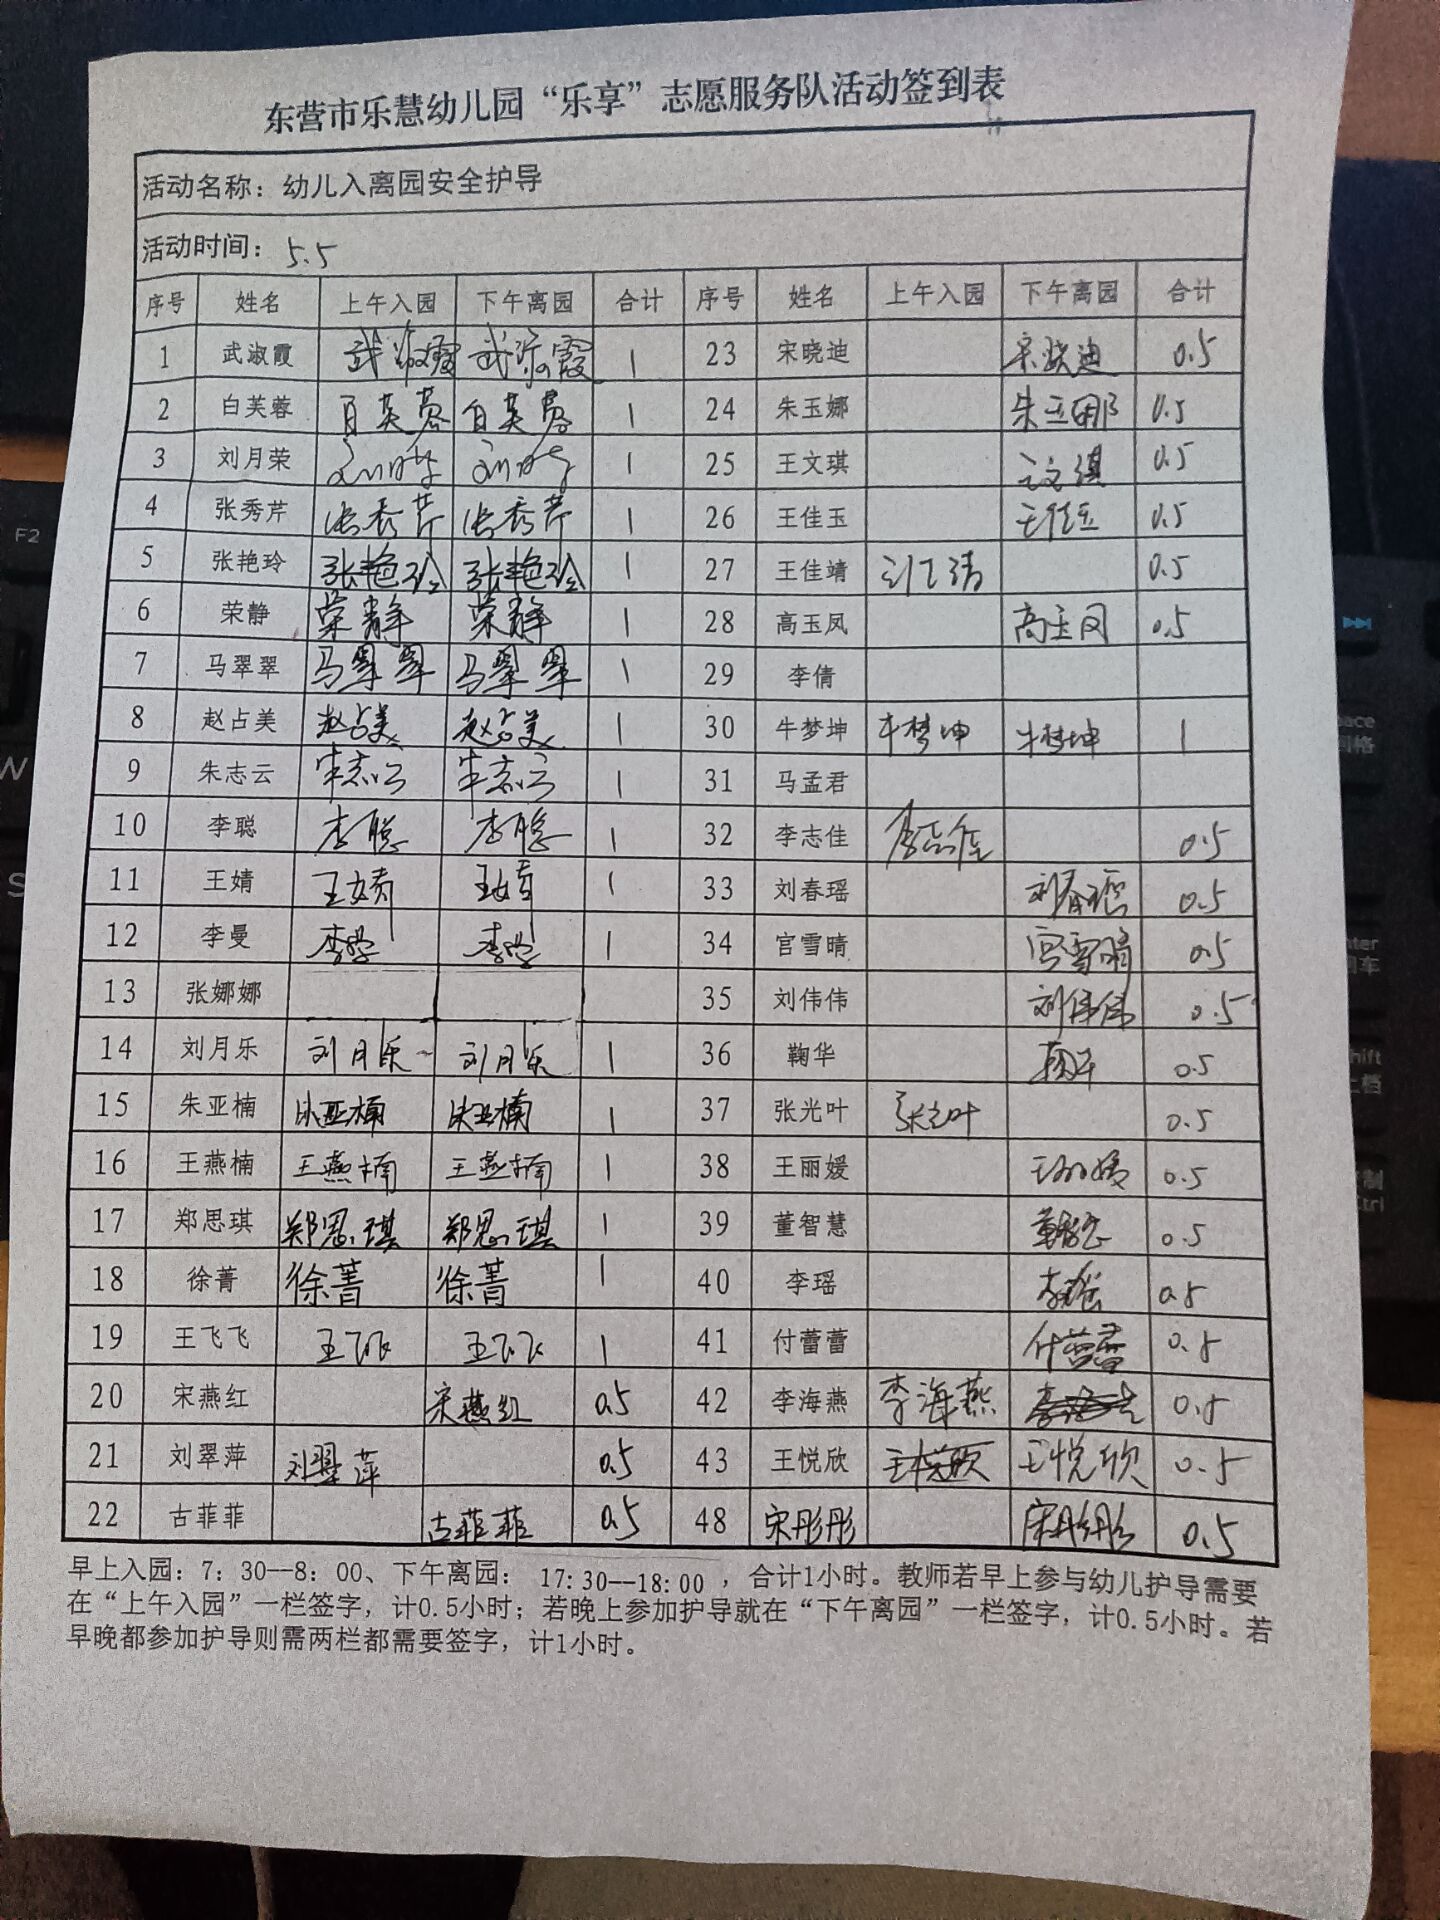 东营市乐慧幼儿园“乐享”志愿服务队活动签到表
活动名称：幼儿入离园安全护导
活动时间：5.5
序号 姓名 上午入园 下午离园 合计 序号 姓名 上午入园 下午离园 合计
1 武淑霞 武淑霞 武淑霞 1 23 宋晓迪 宋晓迪 0.5
2 白芙蓉 白芙蓉 白芙蓉 1 24 朱玉娜 朱玉娜 0.5
3 刘月荣 刘月荣 刘月荣 1 25 王文琪 王文琪 0.5
4 张秀芹 张秀芹 张秀芹 1 26 王佳玉 王佳玉 0.5
5 张艳玲 张艳玲 张艳玲 1 27 王佳靖 0.5
6 荣静 荣静 荣静 1 28 高玉凤 高玉凤 0.5
7 马翠翠 马翠翠 马翠翠 1 29 李倩
8 赵占美 赵占美 赵占美 1 30 牛梦坤 牛梦坤 牛梦坤 1
9 朱志云 朱志云 朱志云 1 31 马孟君
10 李聪 李聪 李聪 1 32 李志佳 李志佳 0.5
11 王婧 王婧 王婧 1 33 刘春瑶 刘春瑶 0.5
12 李曼 李曼 李曼 1 34 官雪晴 官雪晴 0.5
13 张娜娜 35 刘伟伟 刘伟伟 0.5
14 刘月乐 刘月乐 刘月乐 1 36 鞠华 鞠华 0.5
15 朱亚楠 朱亚楠 朱亚楠 1 37 张光叶 张光叶 0.5
16 王燕楠 王燕楠 王燕楠 1 38 王丽媛 王丽媛 0.5
17 郑思琪 郑思琪 郑思琪 1 39 董智慧 董智慧 0.5
18 徐菁 徐菁 徐菁 1 40 李瑶 李瑶 0.5
19 王飞飞 王飞飞 王飞飞 1 41 付蕾蕾 付蕾蕾 0.5
20 宋燕红 宋燕红 0.5 42 李海燕 李海燕 0.5
21 刘翠萍 刘翠萍 0.5 43 王悦欣 王悦欣 王悦欣 0.5
22 古菲菲 古菲菲 0.5 48 宋彤彤 宋彤彤 0.5
早上入园：7：30--8：00、下午离园： 17:30--18:00 ，合计1小时。教师若早上参与幼儿护导需要
在“上午入园”一栏签字，计0.5小时；若晚上参加护导就在“下午离园”一栏签字，计0.5小时。若
早晚都参加护导则需两栏都需要签字，计1小时。